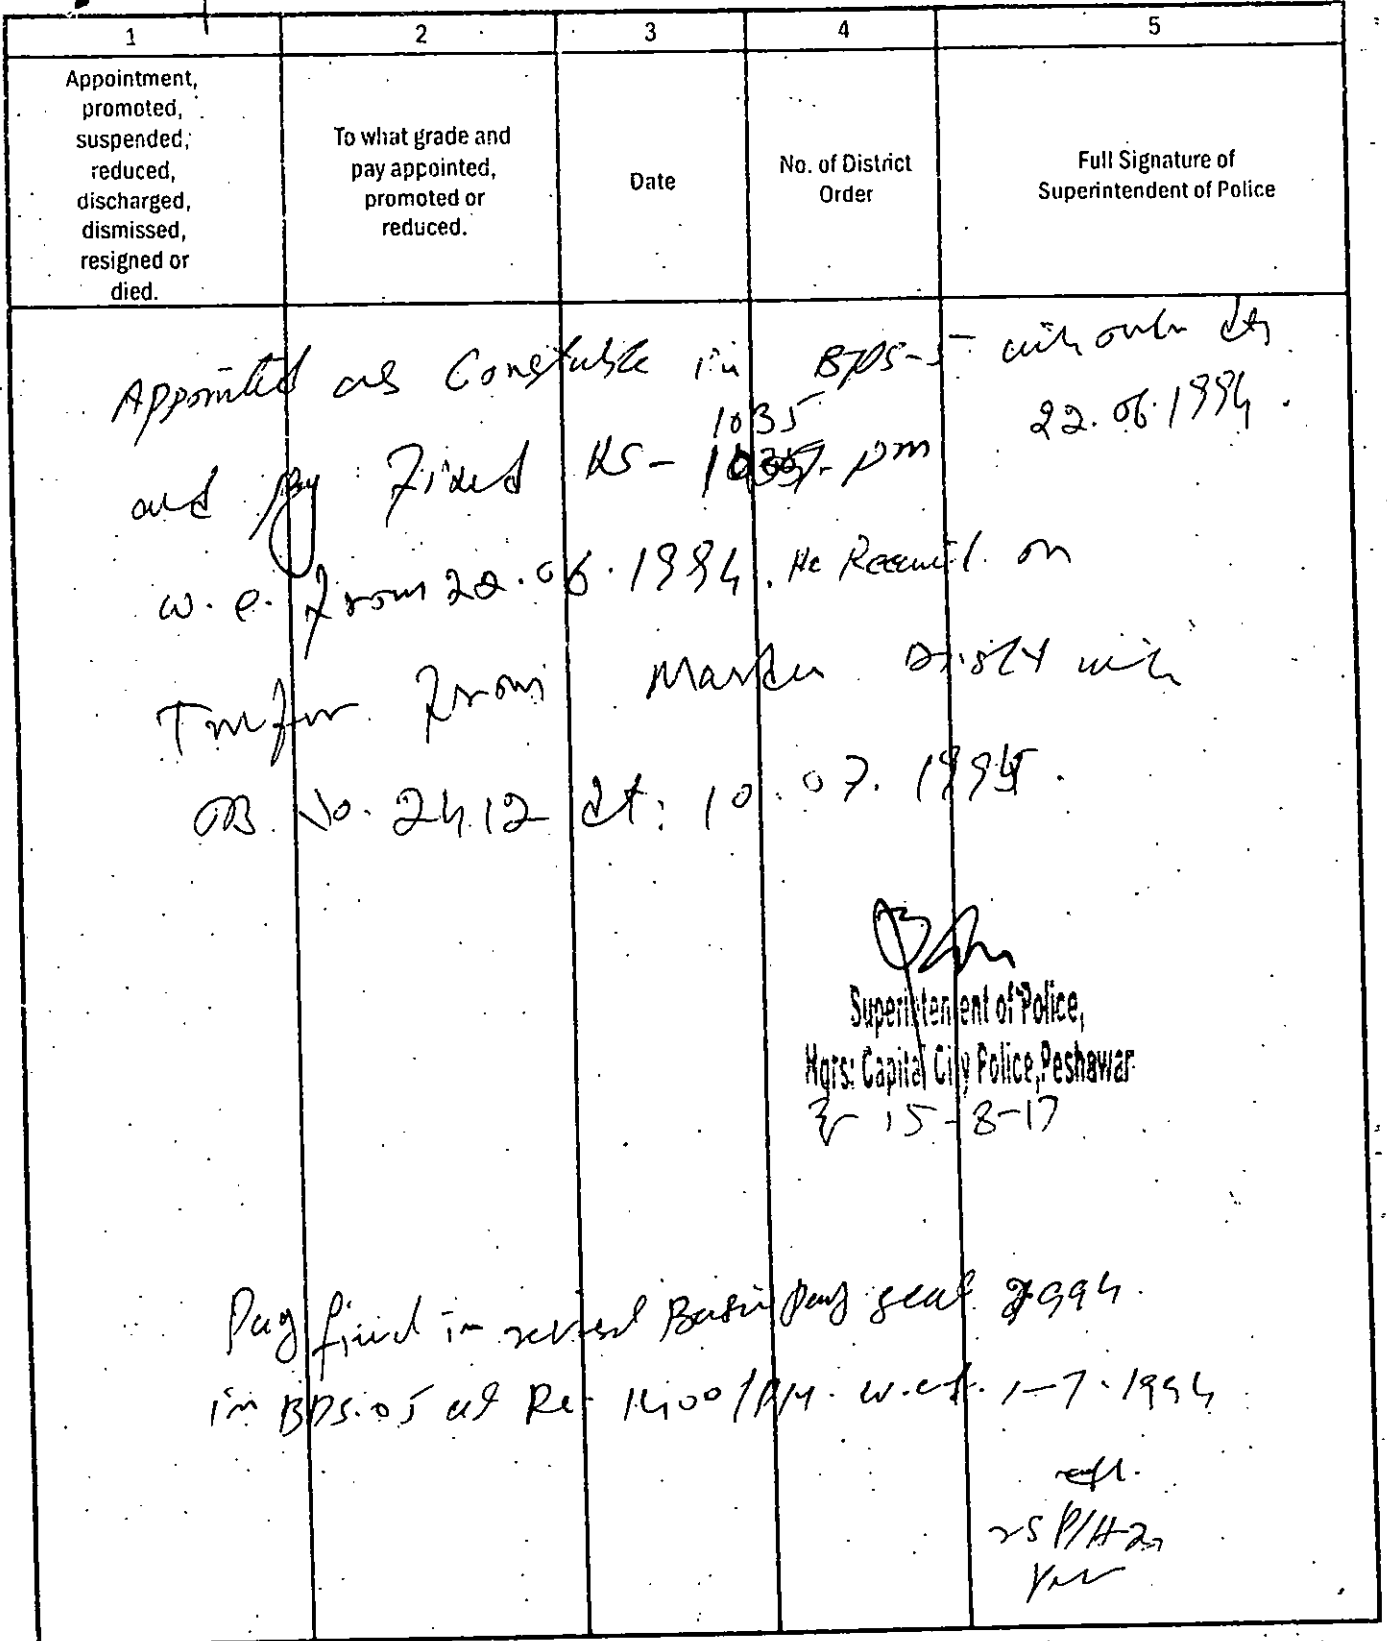 1 2 3 4 5
Appointment,
promoted,
suspended,
reduced,
discharged,
dismissed,
resigned or
died.
To what grade and
pay appointed,
promoted or
reduced.
Date
No. of District
Order
Full Signature of
Superintendent of Police
Appointed as Constable in BPS-5
22.06.1994.
1035
and pay Fixed RS- pm
w.e. from 22.06.1994. He on
from Mardan Distt
OB. No. 2412 dt: 10.07.1995.
Superintendent of Police,
Hqrs: Capital City Police, Peshawar
15-8-17
Pay fixed in revised Basic Pay scal 1994.
in BPS.05 at Rs- 1400/PM. w.e.f. 1-7-1994